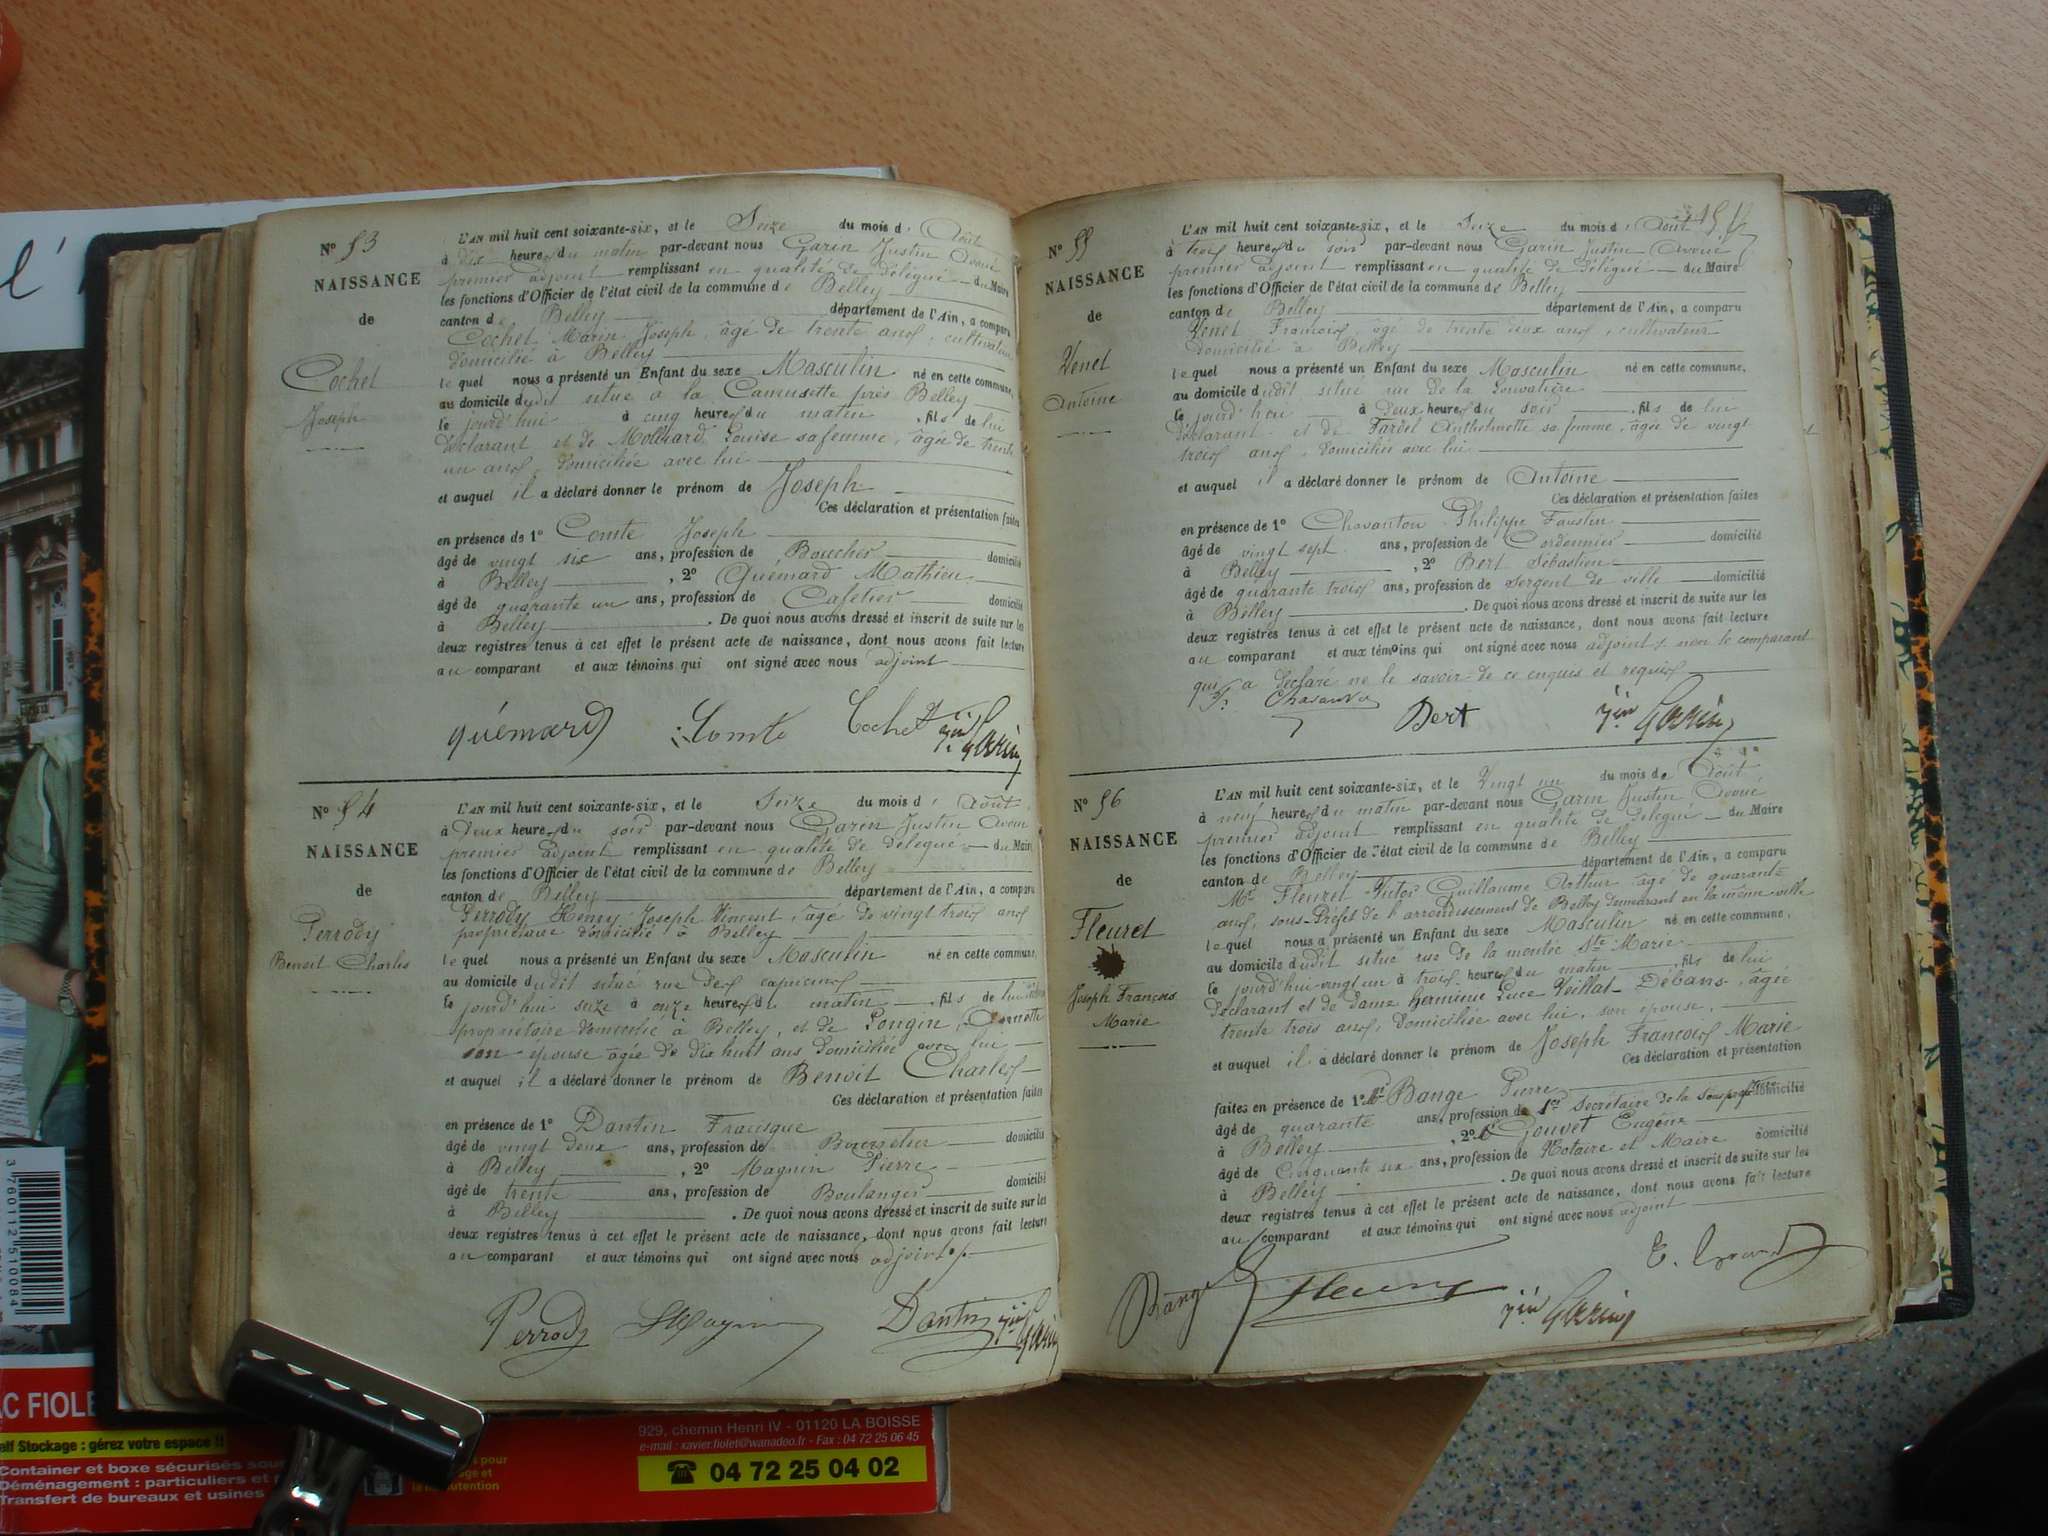 N° 53
NAISSANCE
de
Cochet
Joseph
L'AN mil huit cent soixante-six, et le Seize du mois d' Août
à dix heures du matin par-devant nous Garin Justin Avoué
premier adjoint remplissant en qualité de délégué du Maire
les fonctions d'Officier de l'état civil de la commune de Belley
canton de Belley département de l'Ain, a comparu
Cochet Marin Joseph, âgé de trente ans, cultivateur
domicilié à Belley
lequel nous a présenté un Enfant du sexe Masculin né en cette commune,
au domicile dudit situé à la Camusette près Belley
le jourd'hui à cinq heures du matin, fils de lui
déclarant et de Molliard Louise sa femme, âgée de trente
un ans, domiciliée avec lui
et auquel il a déclaré donner le prénom de Joseph
Ces déclaration et présentation faites
en présence de 1° Comte Joseph
âgé de vingt six ans, profession de Boucher domicilié
à Belley, 2° Quémard Mathieu
âgé de quarante un ans, profession de Cafetier domicilié
à Belley. De quoi nous avons dressé et inscrit de suite sur les
deux registres tenus à cet effet le présent acte de naissance, dont nous avons fait lecture
au comparant et aux témoins qui ont signé avec nous adjoint
quémard Comte Cochet Jin Garin
N° 54
NAISSANCE
de
Perrody
Benoit Charles
L'AN mil huit cent soixante-six, et le Seize du mois d' Août,
à Deux heures du soir par-devant nous Garin Justin Avoué
premier adjoint remplissant en qualité de délégué du Maire
les fonctions d'Officier de l'état civil de la commune de Belley
canton de Belley département de l'Ain, a comparu
Perrody Henry Joseph Vincent, âgé de vingt trois ans
propriétaire domicilié à Belley
lequel nous a présenté un Enfant du sexe Masculin né en cette commune,
au domicile dudit situé rue des capucins
le jourd'hui seize à onze heures du matin, fils de lui
propriétaire domicilié à Belley, et de Pongin
son épouse âgée de dix huit ans domiciliée avec lui
et auquel il a déclaré donner le prénom de Benoit Charles
Ces déclaration et présentation faites
en présence de 1° Dantin Francque
âgé de vingt deux ans, profession de Bourrelier domicilié
à Belley, 2° Magnin Pierre
âgé de trente ans, profession de Boulanger domicilié
à Belley. De quoi nous avons dressé et inscrit de suite sur les
deux registres tenus à cet effet le présent acte de naissance, dont nous avons fait lecture
au comparant et aux témoins qui ont signé avec nous adjoint
Perrody Magnin Dantin Jin Garin
N° 55
NAISSANCE
de
Venet
Antoine
L'AN mil huit cent soixante-six, et le Seize du mois d' Août
à trois heures du soir par-devant nous Garin Justin Avoué
premier adjoint remplissant en qualité de délégué du Maire
les fonctions d'Officier de l'état civil de la commune de Belley
canton de Belley département de l'Ain, a comparu
Venet François âgé de trente deux ans, cultivateur
domicilié à Belley
lequel nous a présenté un Enfant du sexe Masculin né en cette commune,
au domicile dudit situé rue de la
le jourd'hui à Deux heures du soir, fils de lui
déclarant et de Fardel Anthelmette sa femme, âgée de vingt
trois ans, domiciliée avec lui
et auquel il a déclaré donner le prénom de Antoine
Ces déclaration et présentation faites
en présence de 1° Chavanton Philippe Faustin
âgé de vingt sept ans, profession de Cordonnier domicilié
à Belley, 2° Bert Sébastien
âgé de quarante trois ans, profession de sergent de ville domicilié
à Belley. De quoi nous avons dressé et inscrit de suite sur les
deux registres tenus à cet effet le présent acte de naissance, dont nous avons fait lecture
au comparant et aux témoins qui ont signé avec nous adjoint, non le comparant
qui a déclaré ne le savoir de ce enquis et requis
Bert Jin Garin
N° 56
NAISSANCE
de
Fleuret
Joseph François
Marie
L'AN mil huit cent soixante-six, et le Vingt un du mois de Août,
à neuf heures du matin par-devant nous Garin Justin Avoué
premier adjoint remplissant en qualité de délégué du Maire
les fonctions d'Officier de l'état civil de la commune de Belley
canton de Belley département de l'Ain, a comparu
Mr Fleuret Victor Guillaume Arthur âgé de quarante
ans, sous-Préfet de l'arrondissement de Belley demeurant en la même ville
lequel nous a présenté un Enfant du sexe Masculin né en cette commune,
au domicile dudit situé rue de la montée Ste Marie
le jourd'hui vingt un à trois heures du matin, fils de lui
déclarant et de Dame Herminie Luce Veillat Débans, âgée
trente trois ans, domiciliée avec lui, son épouse,
et auquel il a déclaré donner le prénom de Joseph François Marie
Ces déclaration et présentation
faites en présence de 1° Mr Bange Pierre
âgé de quarante ans, profession de 1er secrétaire de la souspréfecture domicilié
à Belley, 2° Mr Gouvet Eugène
âgé de Cinquante six ans, profession de Notaire et Maire domicilié
à Belley. De quoi nous avons dressé et inscrit de suite sur les
deux registres tenus à cet effet le présent acte de naissance, dont nous avons fait lecture
au comparant et aux témoins qui ont signé avec nous adjoint
Bange Fleuret Jin Garin E. Gouvet
3 760112 510084
AC FIOLE
elf Stockage : gérez votre espace !!
Container et boxe sécurisés
Déménagement : particuliers et
Transfert de bureaux et usines
929, chemin Henri IV - 01120 LA BOISSE
e-mail : xavier.fiolet@wanadoo.fr - Fax : 04 72 25 06 45
04 72 25 04 02